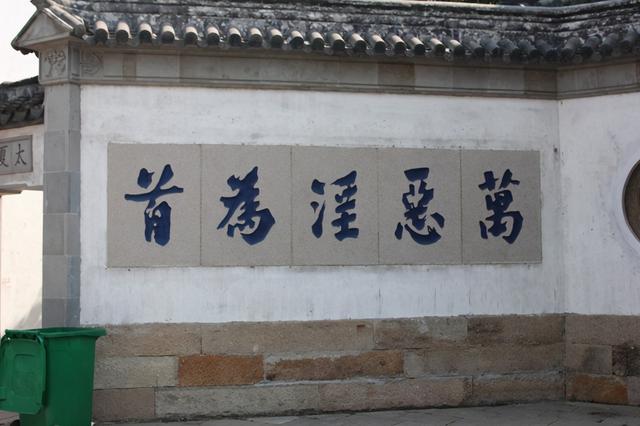 萬惡淫為首
太夏